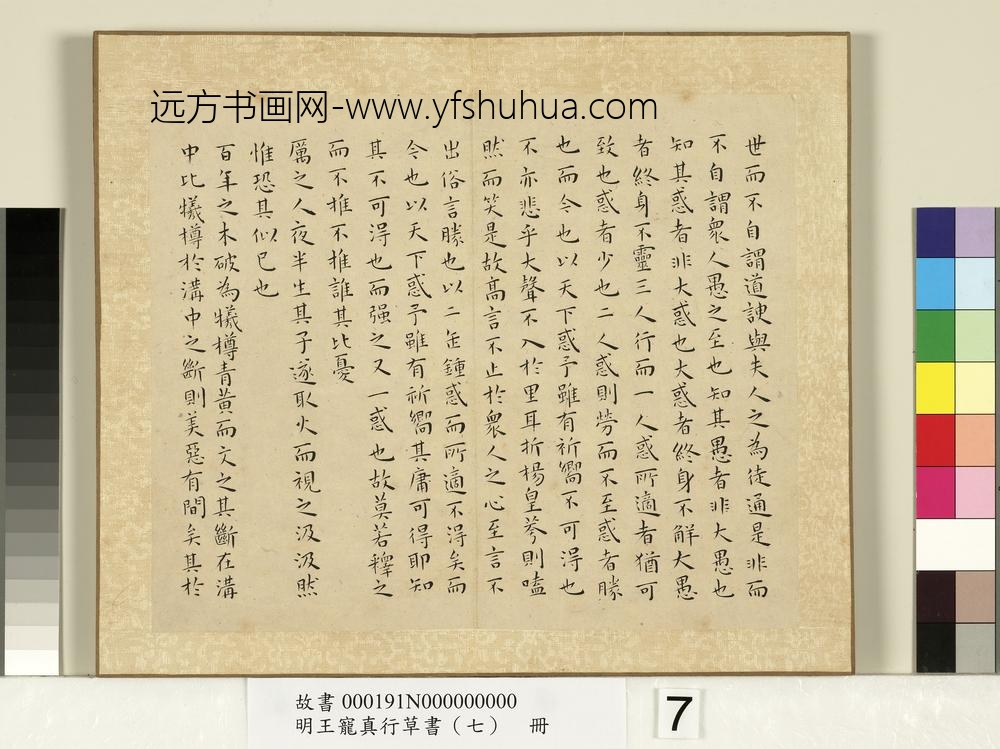 远方书画网-www.yfshuhua.com
世而不自謂道諛與夫人之為徒通是非而
不自謂衆人愚之至也知其愚者非大愚也
知其惑者非大惑也大惑者終身不解大愚
者終身不靈三人行而一人惑所適者猶可
致也惑者少也二人惑則勞而不至惑者勝
也而今也以天下惑予雖有祈嚮不可得也
不亦悲乎大聲不入於里耳折楊皇荂則嗑
然而笑是故高言不止於衆人之心至言不
出俗言勝也以二缶鍾惑而所適不得矣而
今也以天下惑予雖有祈嚮其庸可得耶知
其不可得也而强之又一惑也故莫若釋之
而不推不推誰其比憂
厲之人夜半生其子遂取火而視之汲汲然
惟恐其似己也
百年之木破為犧樽青黃而文之其斷在溝
中比犧樽於溝中之斷則美惡有間矣其於
故書 000191N000000000
明王寵真行草書（七） 冊
7